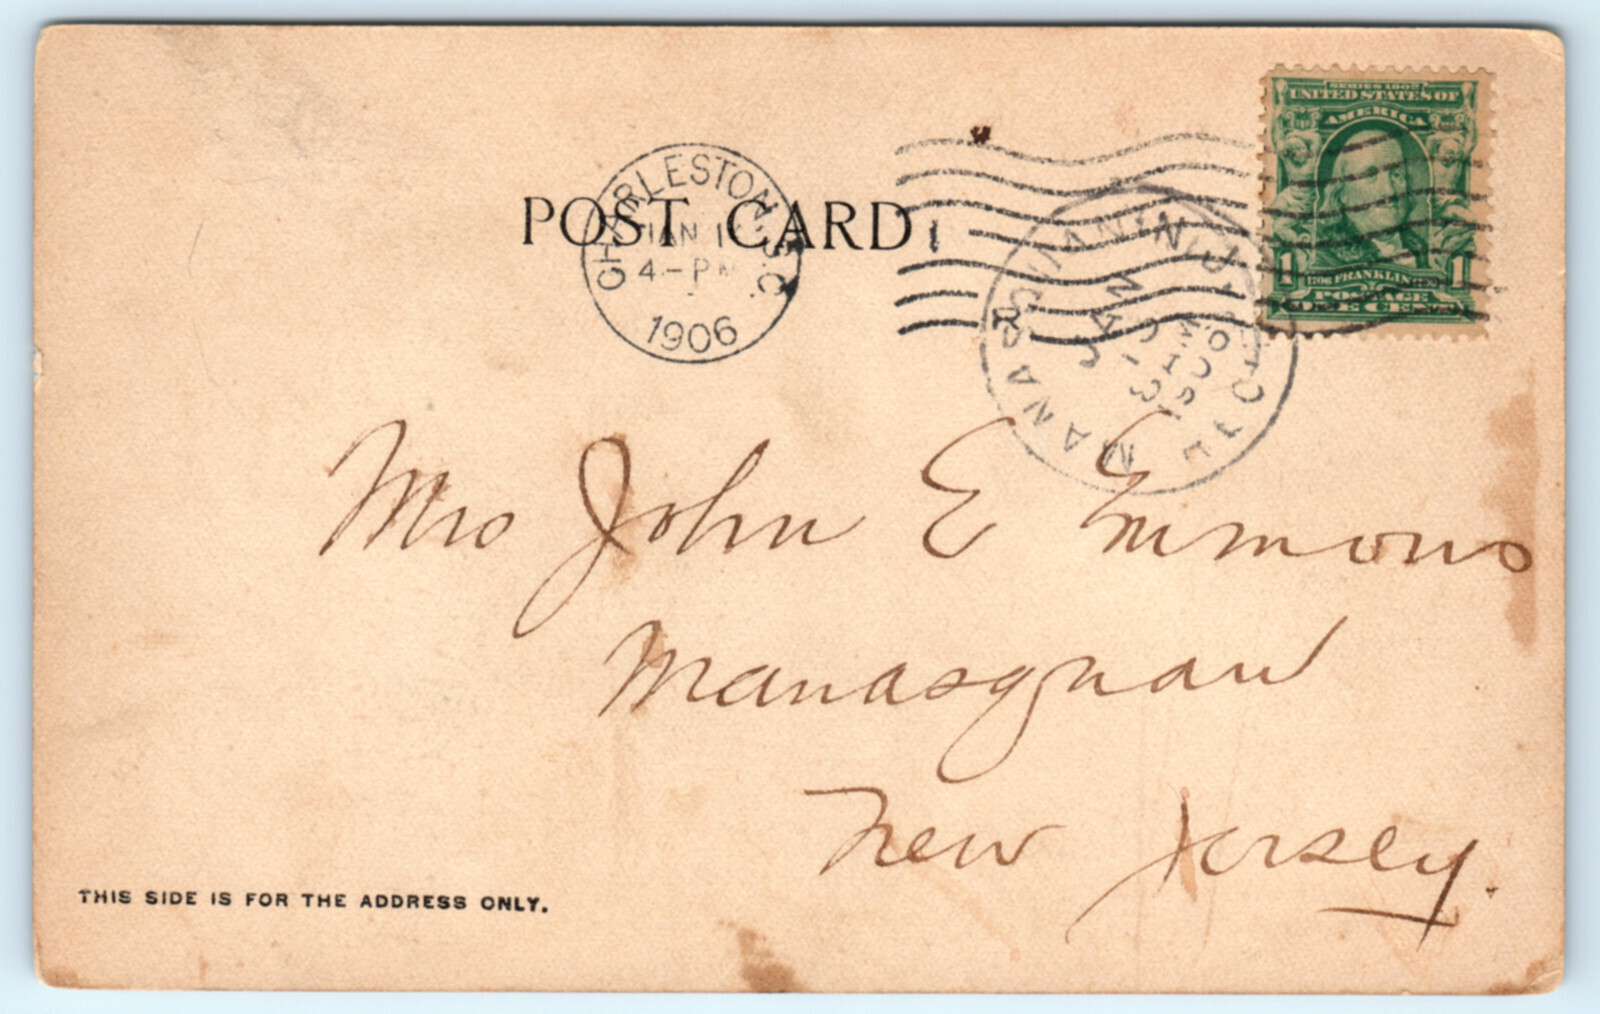 POST CARD
CHARLESTON, S.C.
JAN
4-PM
1906
1
MANASQUAN, N.J.
JAN
SERIES 1902
UNITED STATES OF
AMERICA
1 FRANKLIN 1
POSTAGE
ONE CENT
Mrs John E Emmons
Manasquan
New Jersey.
THIS SIDE IS FOR THE ADDRESS ONLY.